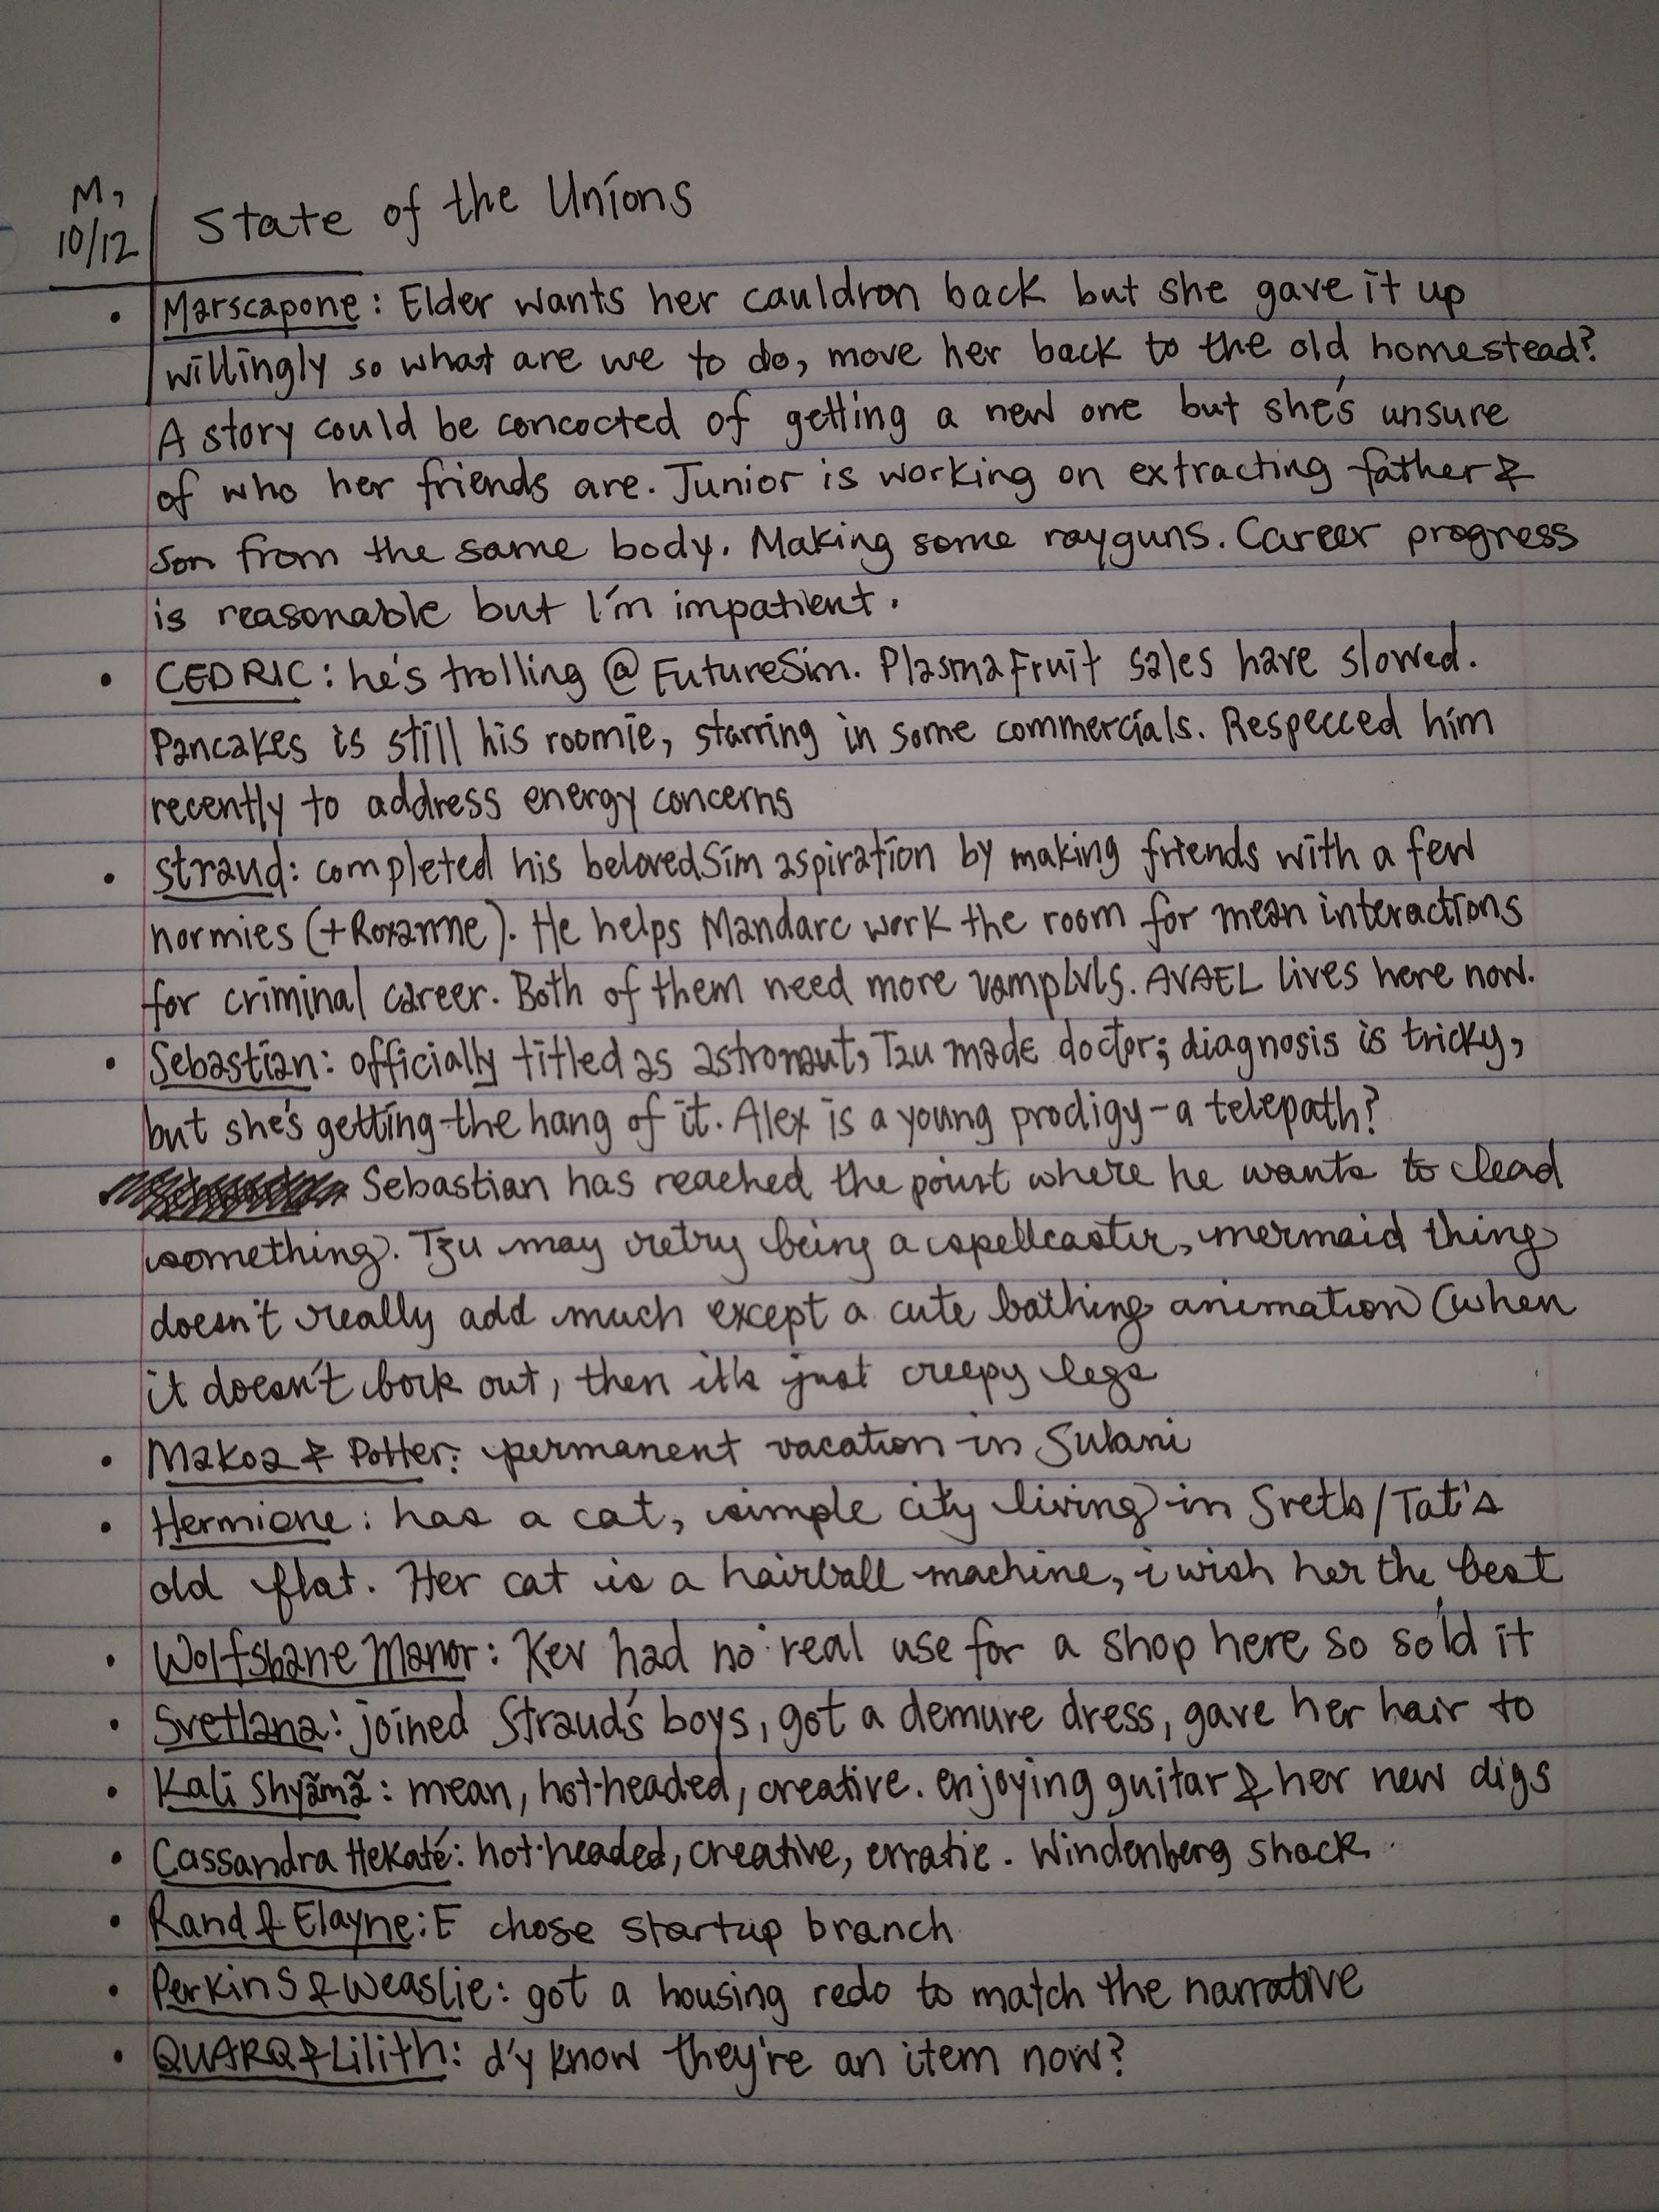 M,
10/12
State of the Unions
• Marscapone: Elder wants her cauldron back but she gave it up
willingly so what are we to do, move her back to the old homestead?
A story could be concocted of getting a new one but she's unsure
of who her friends are. Junior is working on extracting father &
son from the same body. Making some rayguns. Career progress
is reasonable but I'm impatient.
• CEDRIC: he's trolling @ FutureSim. PlasmaFruit sales have slowed.
Pancakes is still his roomie, starring in some commercials. Respecced him
recently to address energy concerns
• Straud: completed his belovedSim aspiration by making friends with a few
normies (+Roxanne). He helps Mandarc work the room for mean interactions
for criminal career. Both of them need more vampLvls. AVAEL lives here now.
• Sebastian: officially titled as astronaut, Tzu made doctor; diagnosis is tricky,
but she's getting the hang of it. Alex is a young prodigy - a telepath?
Sebastian has reached the point where he wants to lead
something. Tzu may retry being a spellcaster, mermaid thing
doesn't really add much except a cute bathing animation (when
it doesn't bork out, then it's just creepy legs
• Makoa & Potter: permanent vacation in Sulani
• Hermione: has a cat, simple city living in Svetb/Tat's
old flat. Her cat is a hairball machine, i wish her the best
• Wolfsbane Manor: Kev had no real use for a shop here so sold it
• Svetlana: joined Straud's boys, got a demure dress, gave her hair to
• Kali Shyãmã: mean, hot-headed, creative. enjoying guitar & her new digs
• Cassandra Hekaté: hot-headed, creative, erratic. Windenberg shack
• Rand & Elayne: E chose startup branch
• Perkins & Weaslie: got a housing redo to match the narrative
• QUARQ & Lilith: d'y know they're an item now?